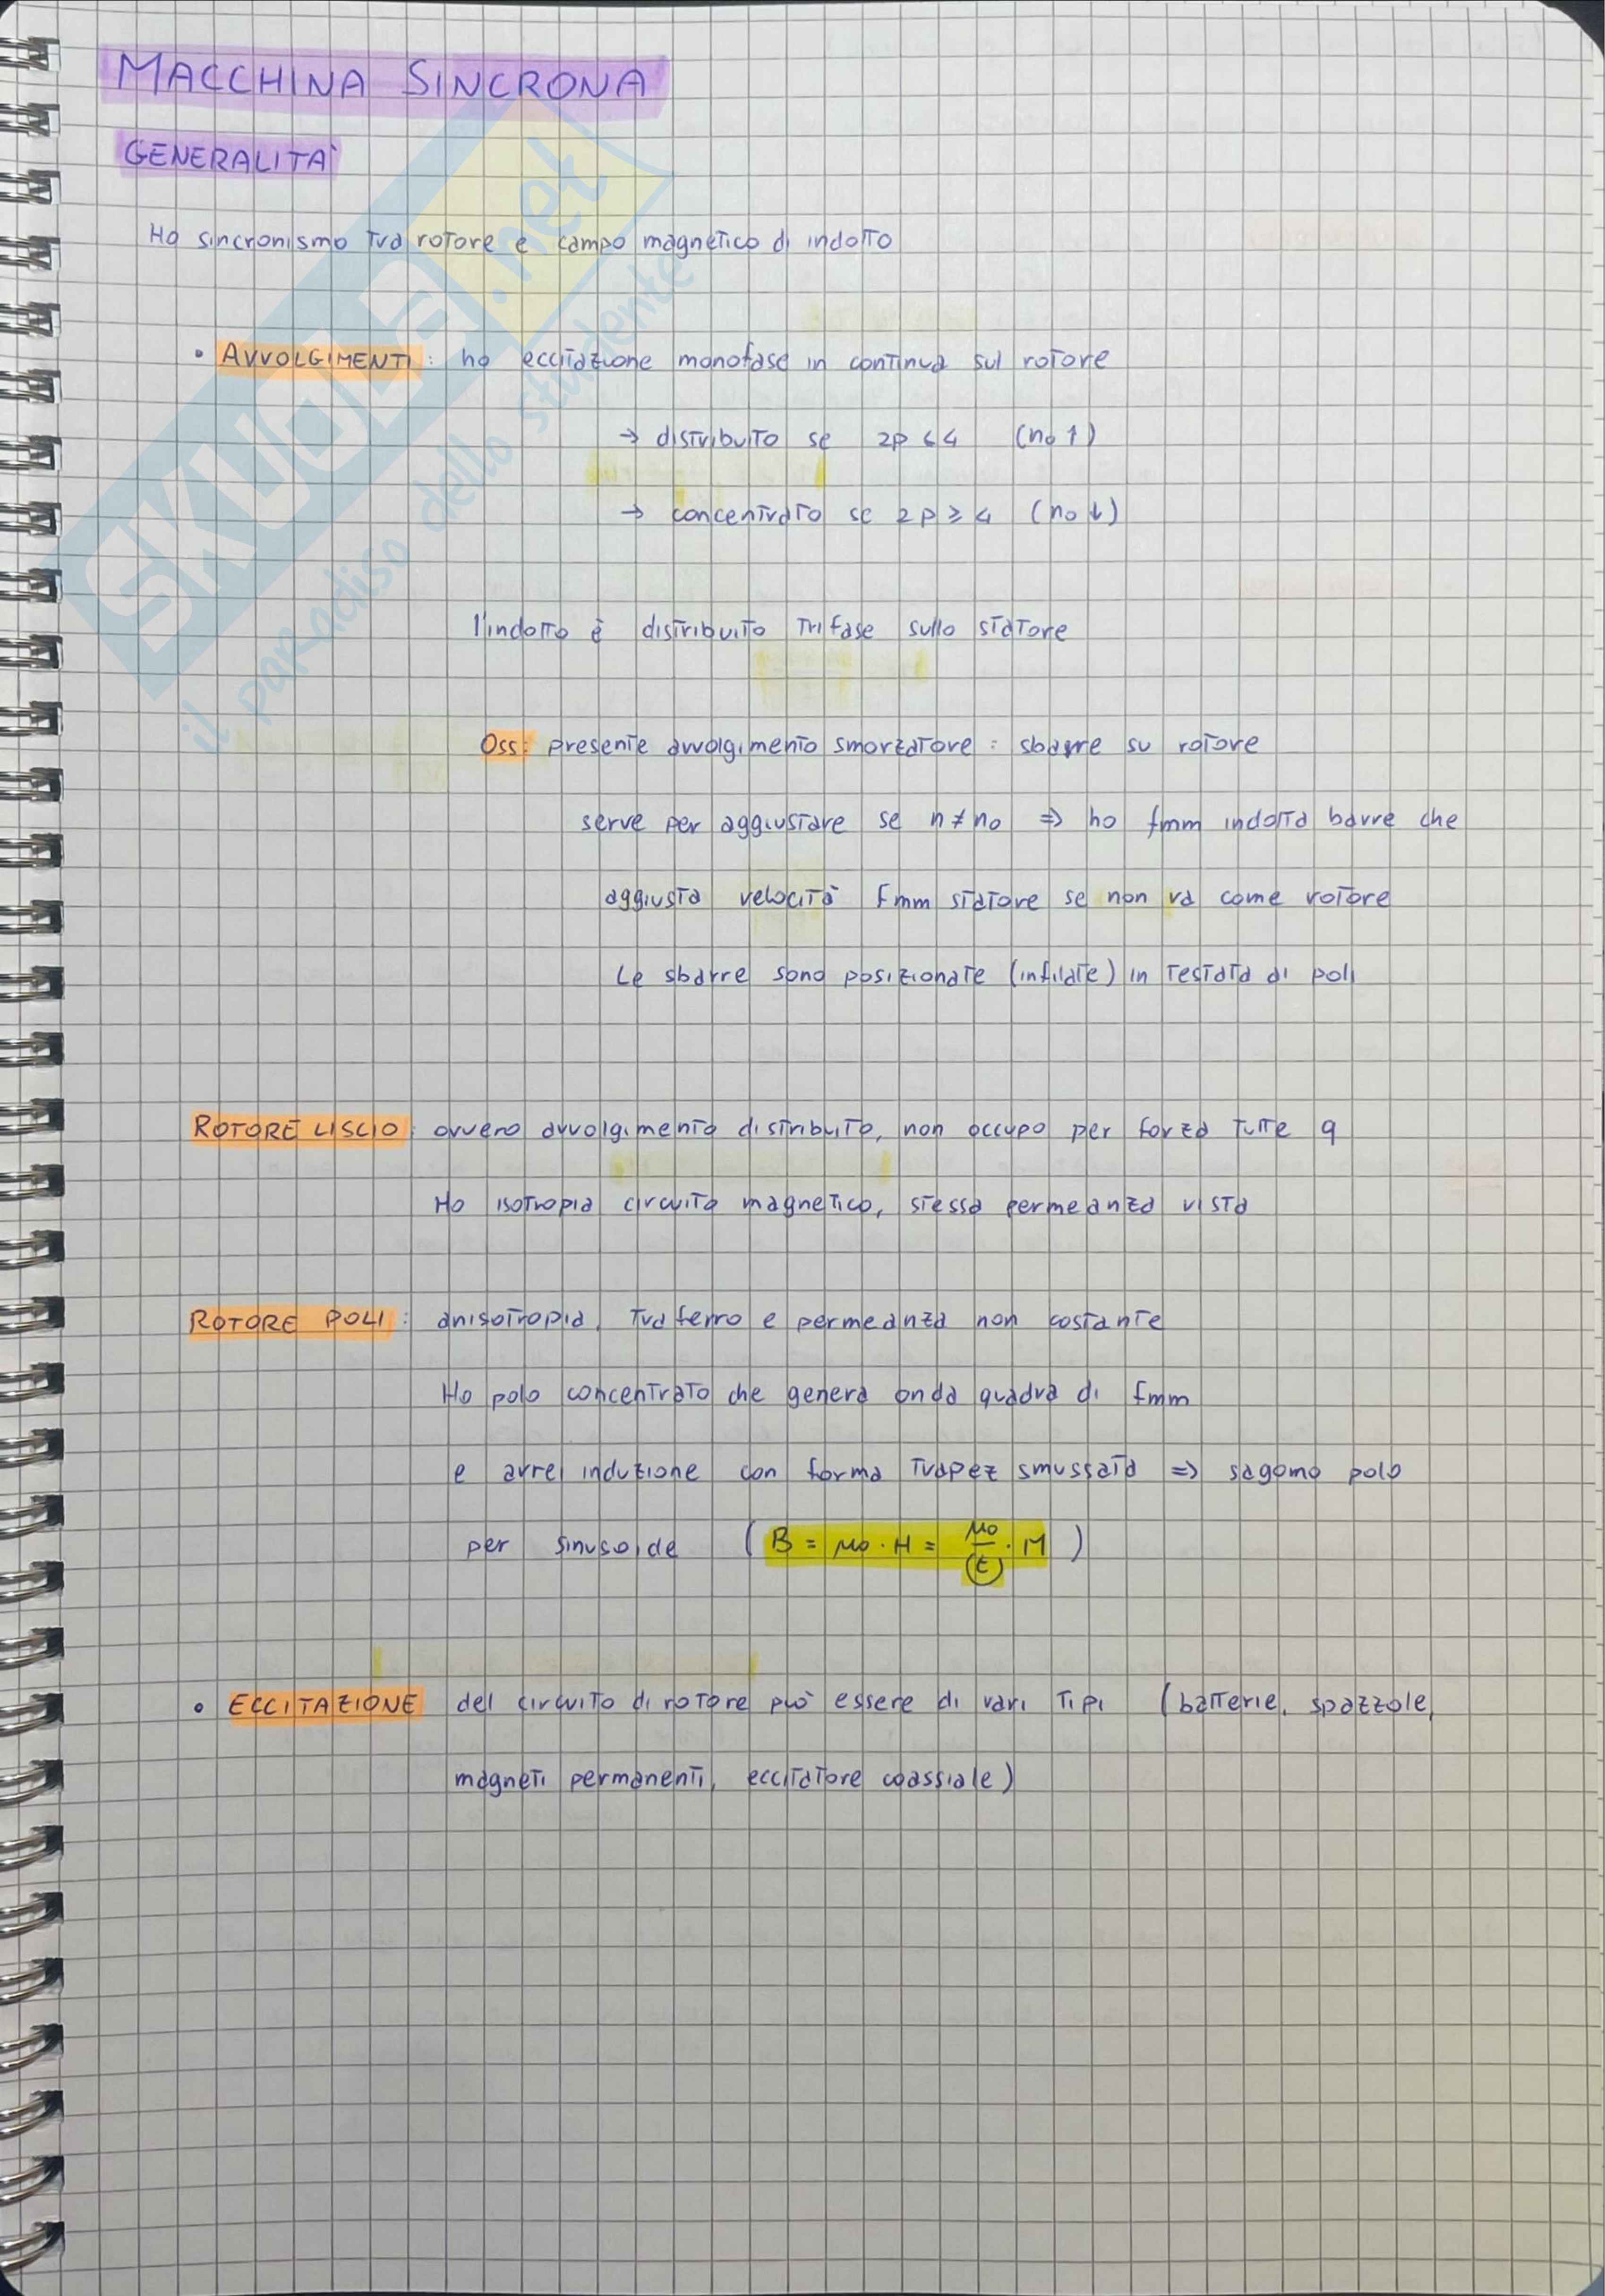 MACCHINA SINCRONA
GENERALITA'
Ho sincronismo tra rotore e campo magnetico di indotto
• AVVOLGIMENTI: ho eccitazione monofase in continua sul rotore
→ distribuito se 2p < 4 (no ↑)
→ concentrato se 2p ≥ 4 (no ↓)
l'indotto è distribuito trifase sullo statore
Oss: presente avvolgimento smorzatore: sbarre su rotore
serve per aggiustare se n ≠ no => ho fmm indotta barre che
aggiusta velocità fmm statore se non va come rotore
Le sbarre sono posizionate (infilate) in testata di poli
ROTORE LISCIO: ovvero avvolgimento distribuito, non occupo per forza tutte q
Ho isotropia circuito magnetico, stessa permeanza vista
ROTORE POLI: anisotropia, traferro e permeanza non costante
Ho polo concentrato che genera onda quadra di fmm
e avrei induzione con forma trapez smussata => sagomo polo
per sinusoide (B = μo · H = μo/(t) · M)
• ECCITAZIONE del circuito di rotore può essere di vari tipi (batterie, spazzole,
magneti permanenti, eccitatore coassiale)
SKUOLA.net
il paradiso dello studente